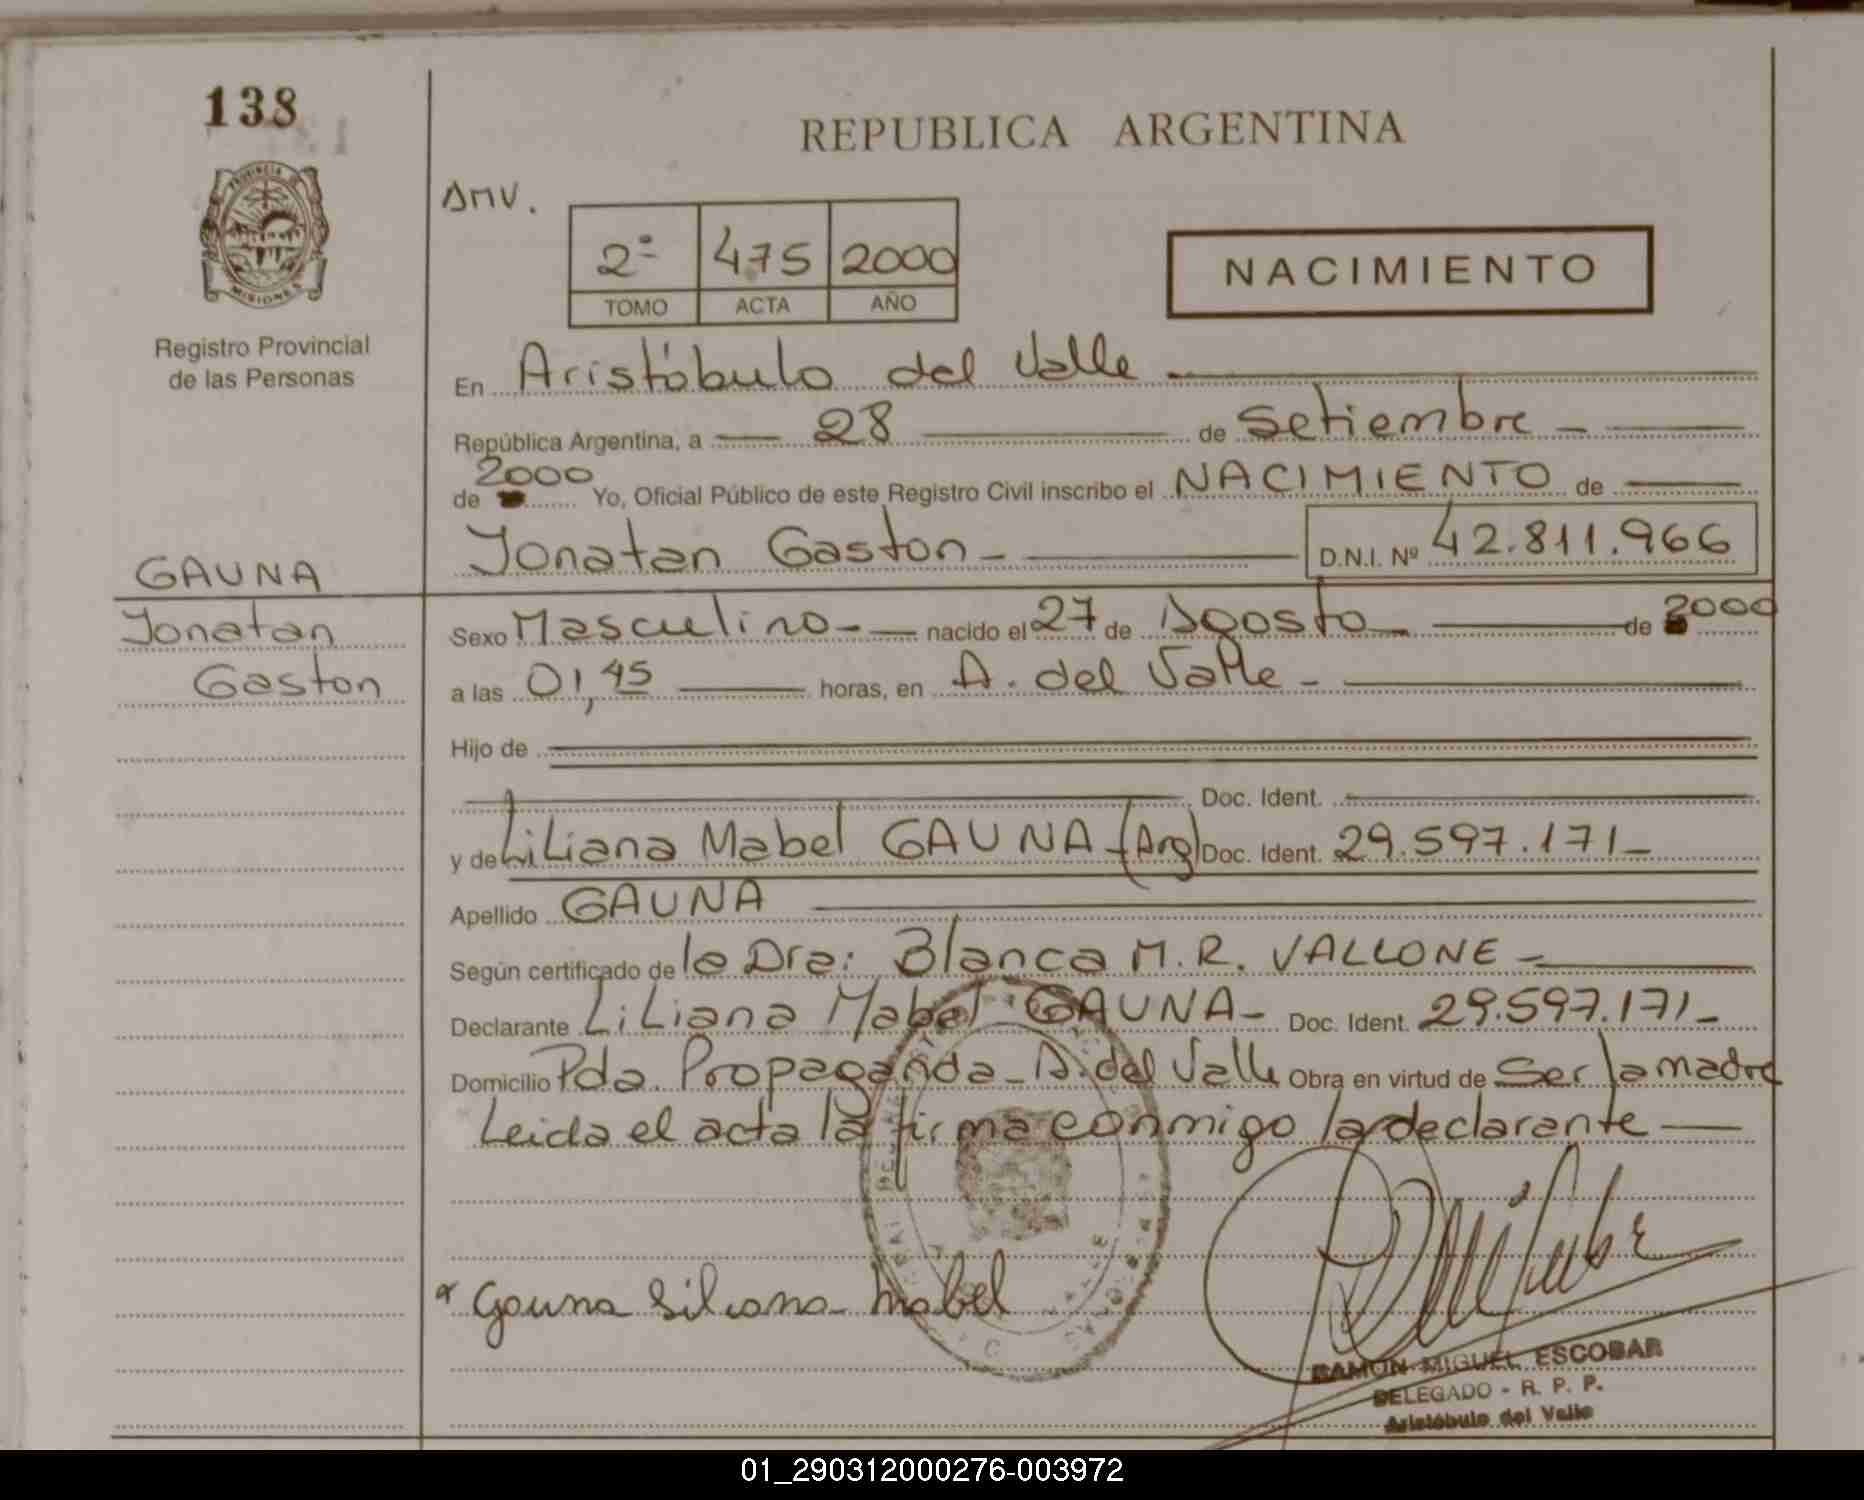 138
REPUBLICA ARGENTINA
PROVINCIA DE
MISIONES
Registro Provincial
de las Personas
AMV.
2º 475 2000
TOMO ACTA AÑO
NACIMIENTO
En Aristóbulo del Valle
República Argentina, a 28 de Setiembre
de 2000 Yo, Oficial Público de este Registro Civil inscribo el NACIMIENTO de
GAUNA
Jonatan
Gaston
Jonatan Gaston D.N.I. Nº 42.811.966
Sexo Masculino nacido el 27 de Agosto de 2000
a las 01,45 horas, en A. del Valle
Hijo de
Doc. Ident.
y de Liliana Mabel GAUNA (Arg) Doc. Ident. 29.597.171
Apellido GAUNA
Según certificado de la Dra: Blanca M. R. VALLONE
Declarante Liliana Mabel GAUNA Doc. Ident. 29.597.171
Domicilio Pda. Propaganda A. del Valle Obra en virtud de Ser la madre
Leida el acta la firma conmigo la declarante
Gauna Liliana Mabel
RAMON MIGUEL ESCOBAR
DELEGADO - R. P. P.
Aristóbulo del Valle
01_290312000276-003972